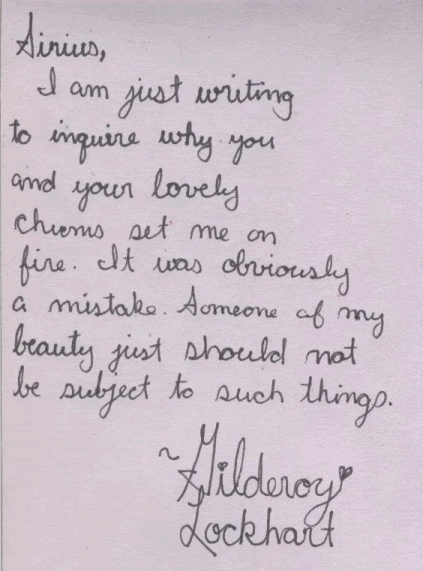 Sirius,
I am just writing
to inquire why you
and your lovely
chums set me on
fire. It was obviously
a mistake. Someone of my
beauty just should not
be subject to such things.
~Gilderoy♥
Lockhart